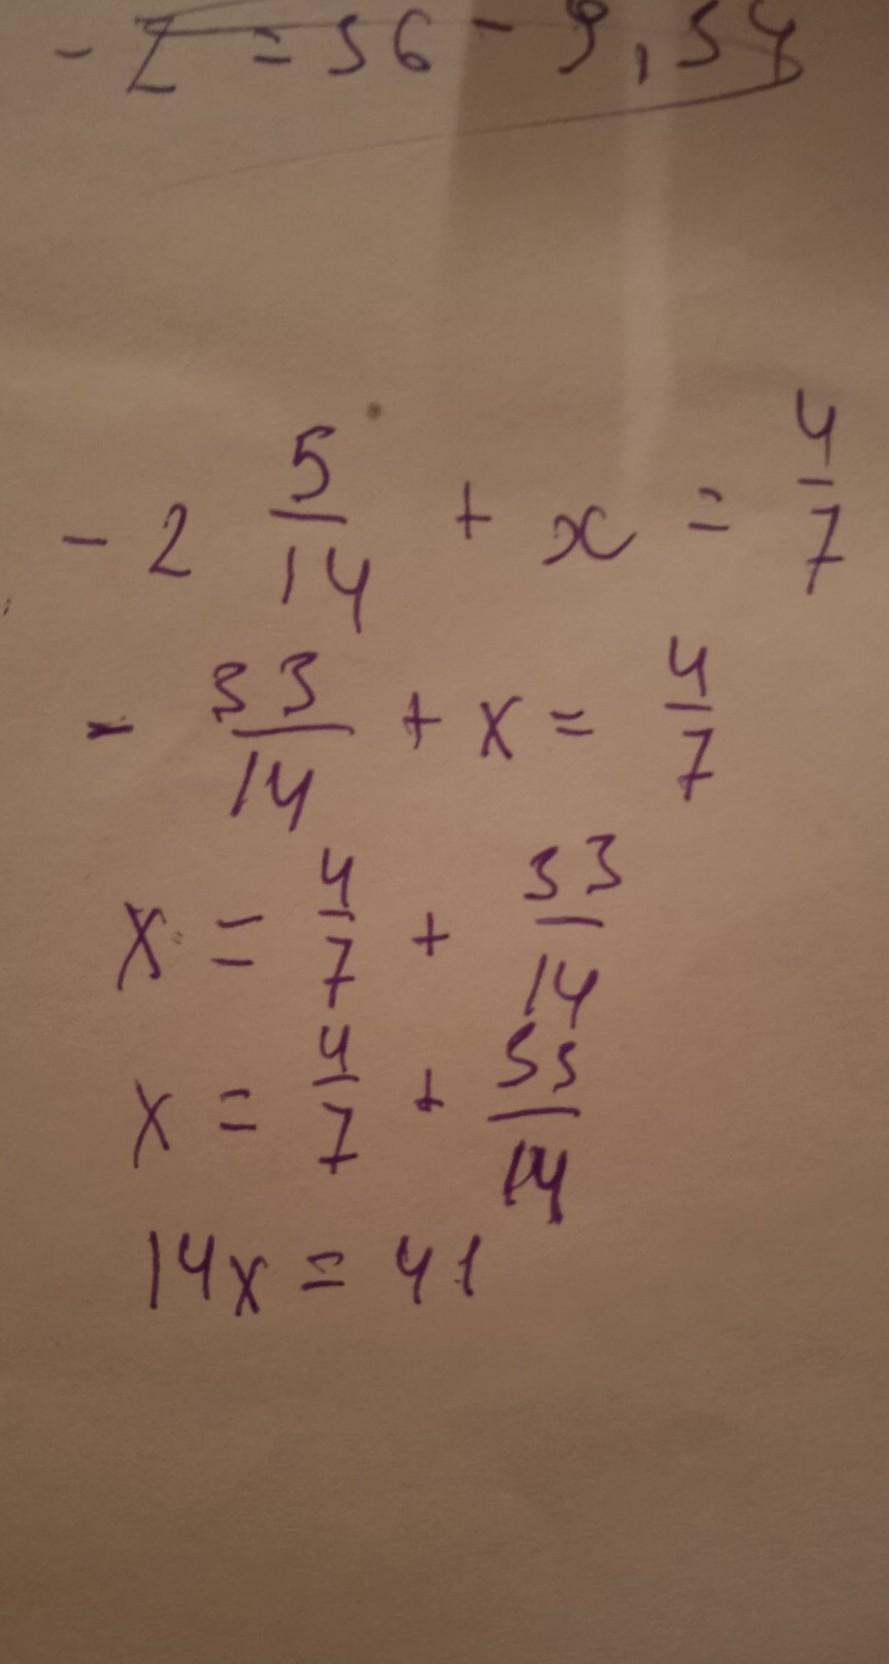 - Z = 36 - 9,34
- 2 5/14 + x = 4/7
- 33/14 + x = 4/7
x = 4/7 + 33/14
x = 4/7 + 33/14
14x = 41